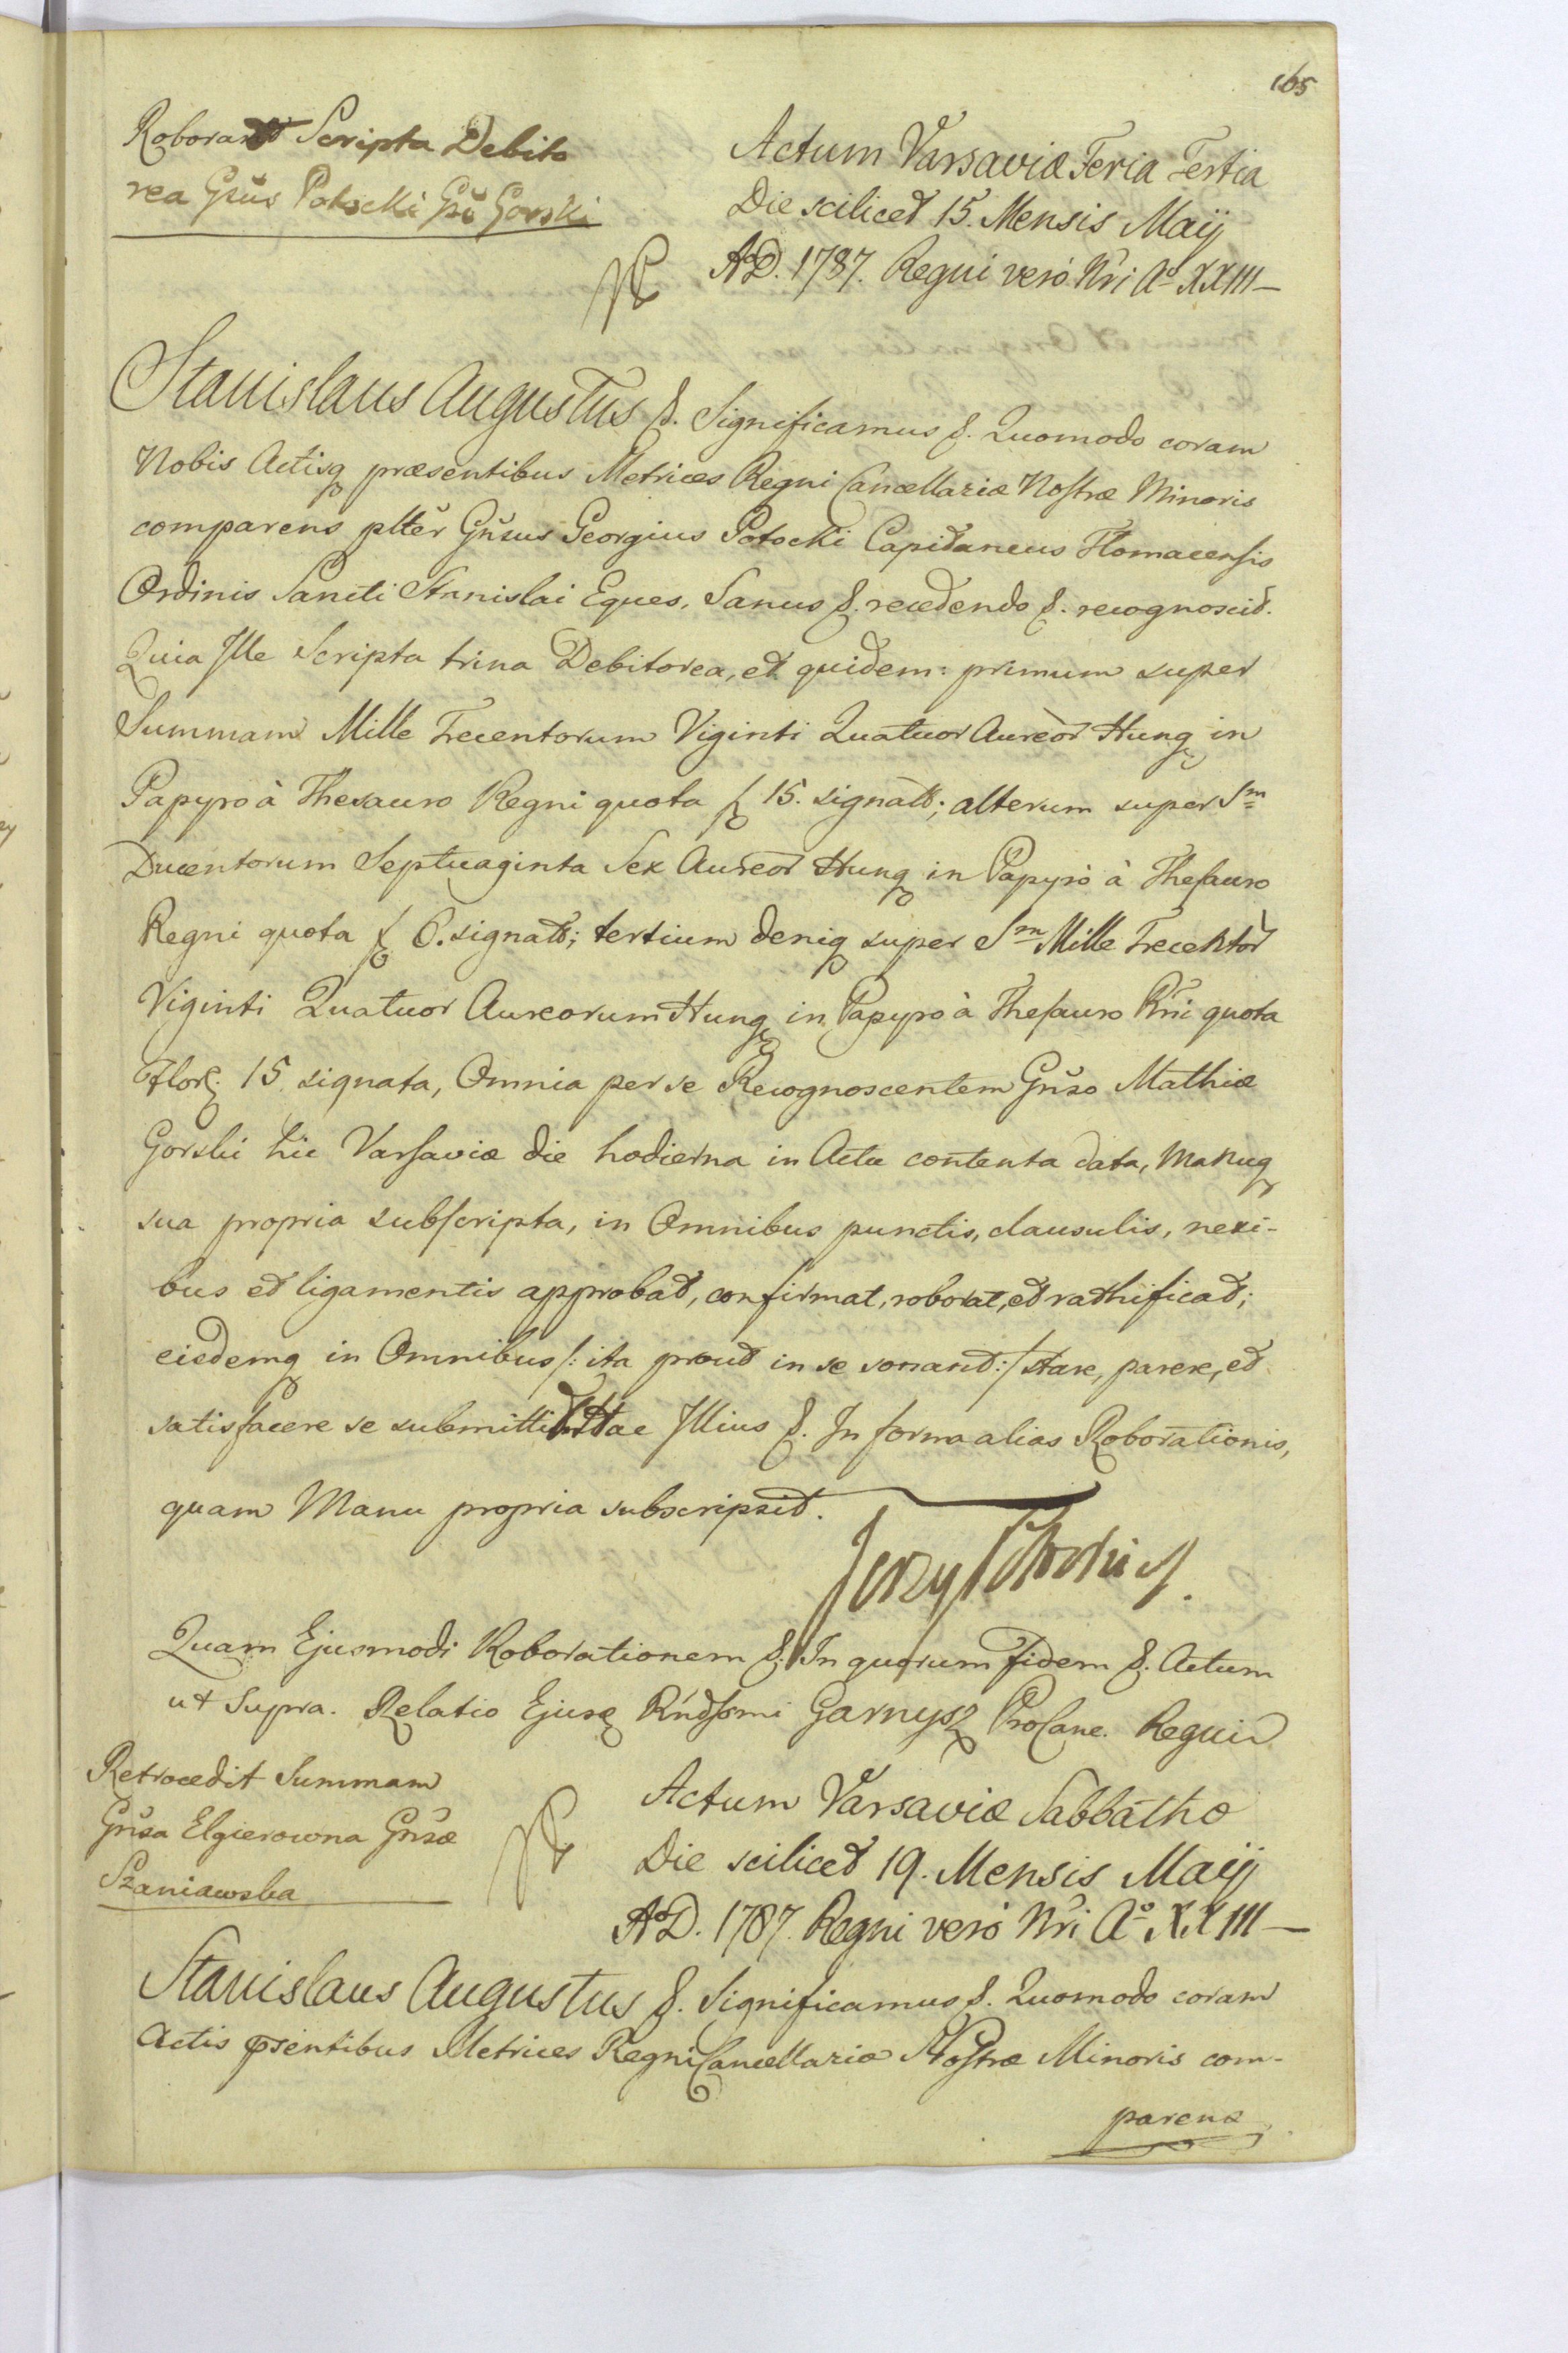 165
Roborant Scripta Debito
rea Grūs Potocki Grō Gorski
Actum Varsaviæ Feria Tertia
Die scilicet 15. Mensis Maij
AoD. 1787. Regni verò Nri Ao XXIII—
Stanislaus Augustus &. Significamus &. Quomodo coram
Nobis Actisq præsentibus Metrices Regni Cancellariæ Nostræ Minoris
comparens plter Gnsus Georgius Potocki Capitaneus Tlomacensis
Ordinis Sancti Stanislai Eques, Sanus &. recedendo &. recognoscit.
Quia Ille Scripta trina Debitorea, et quidem: primum super
Summam Mille Trecentorum Viginti Quatuor Aureor Hung in
Papyro à Thesauro Regni quota f 15. signato; alterum super Sm
Ducentorum Septuaginta Sex Aureor Hung in Papyro à Thesauro
Regni quota f 6. signato; tertium deniq super Sm Mille Trecentor
Viginti Quatuor Aureorum Hung in Papyro à Thesauro Rni quota
Flor. 15 signata, Omnia per se Recognoscentem Gnso Mathiæ
Gorski hic Varsaviæ die hodierna in Actu contenta data, Manuq
sua propria subscripta, in Omnibus punctis, clausulis, nexi-
bus et ligamentis approbat, confirmat, roborat, et rathificat;
eisdemq in Omnibus /: ita prout in se sonant :/ stare, parere, et
satisfacere se submittit Hac Illius &. In forma alias Roborationis,
quam Manu propria subscripsit.
Jerzy Potocki
Quam Ejusmodi Roborationem &. In quorum fidem &. Actum
ut Supra. Relatio Ejusq Rndssmi Garnysz ProCanc. Regni
Retrocedit Summam
Gnsa Elgierowna Gnsæ
Szaniawska
Actum Varsaviæ Sabbatho
Die scilicet 19. Mensis Maij
AoD. 1787. Regni verò Nri Ao XXIII—
Stanislaus Augustus &. Significamus &. Quomodo coram
Actis psentibus Metrices Regni Cancellariæ Nostræ Minoris com-
parens